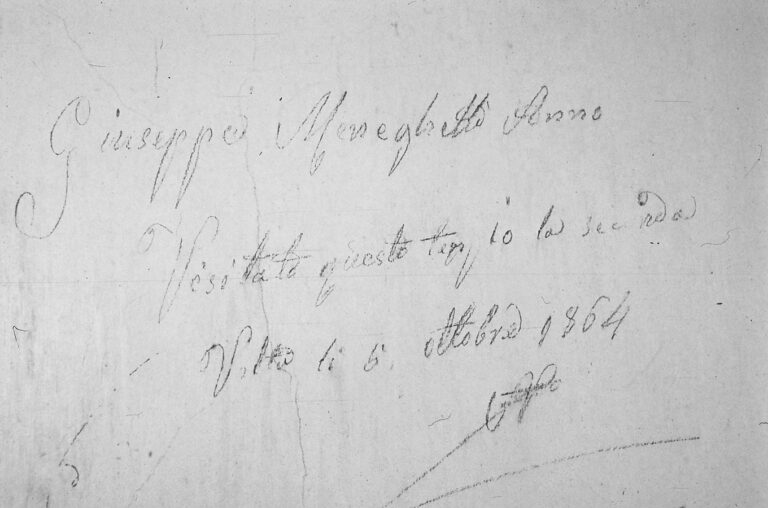 Giuseppe Meneghetti Anno
Visitato questo tempio la seconda
Volta li 6 ottobre 1864